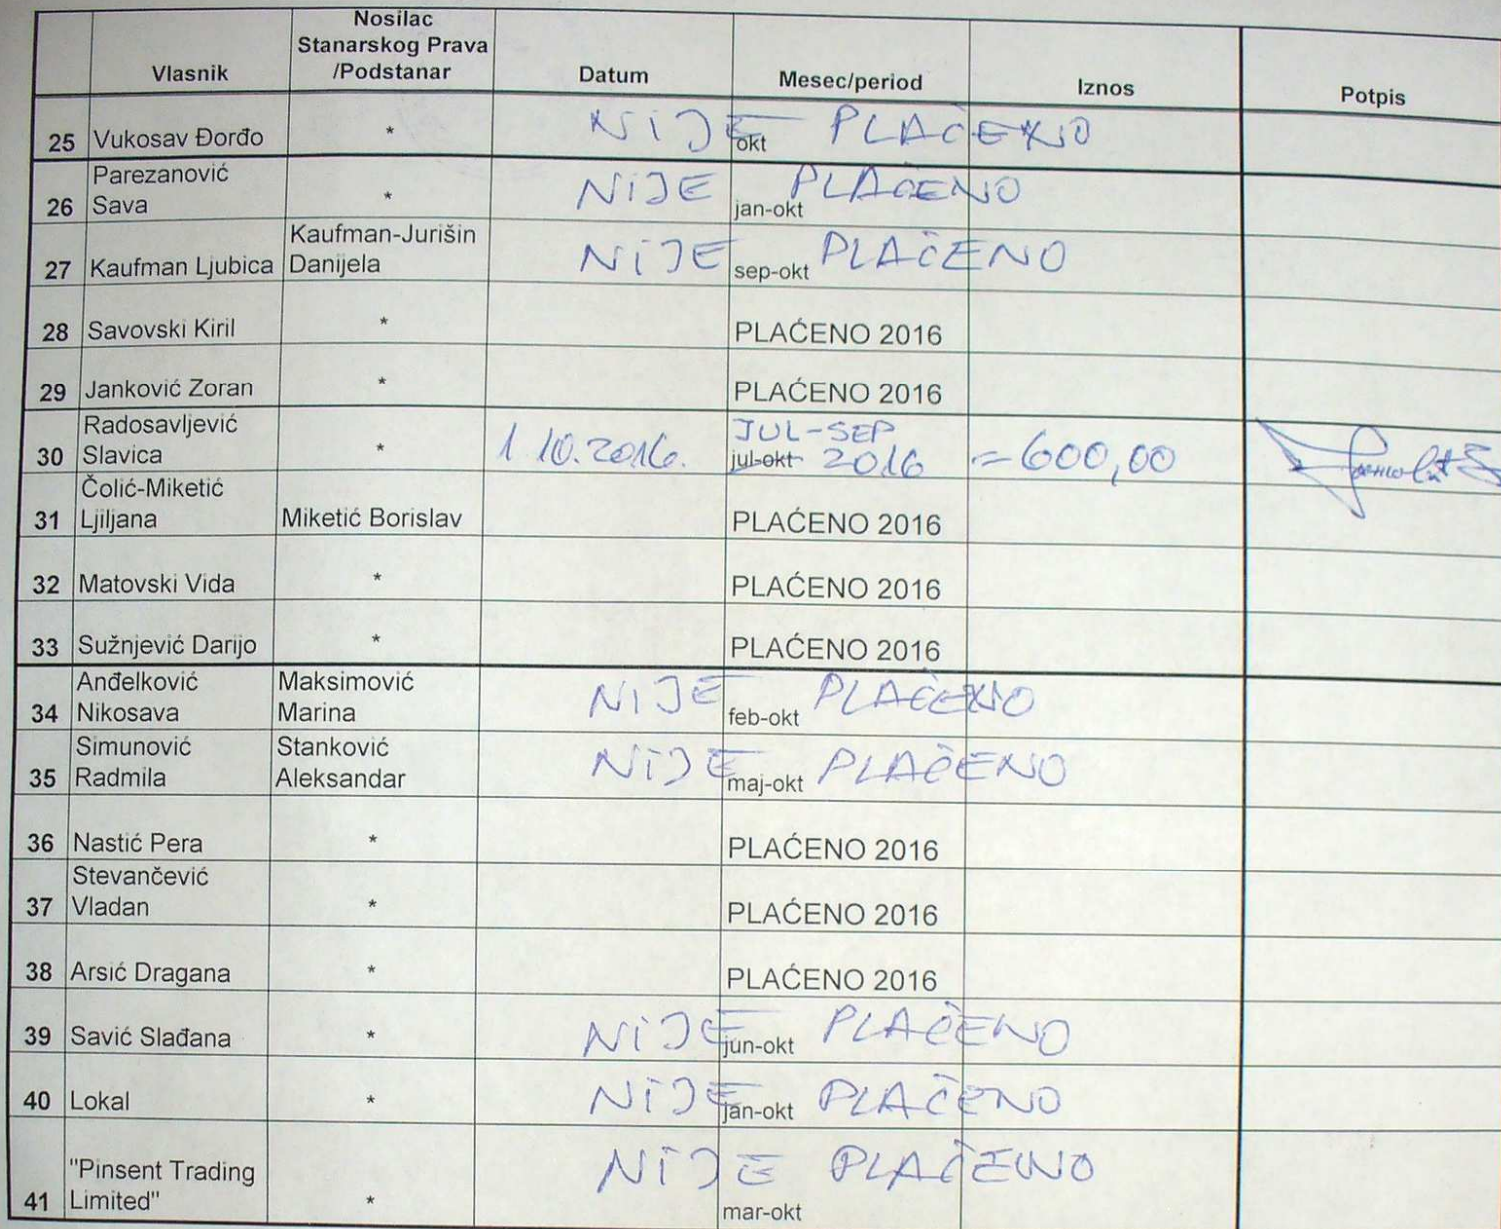 Vlasnik Nosilac Stanarskog Prava /Podstanar Datum Mesec/period Iznos Potpis
25 Vukosav Đorđo * NIJE okt PLAĆENO
26 Parezanović Sava * NIJE jan-okt PLAĆENO
27 Kaufman Ljubica Kaufman-Jurišin Danijela NIJE sep-okt PLAĆENO
28 Savovski Kiril * PLAĆENO 2016
29 Janković Zoran * PLAĆENO 2016
30 Radosavljević Slavica * 1.10.2016. JUL-SEP jul-okt 2016 =600,00
31 Čolić-Miketić Ljiljana Miketić Borislav PLAĆENO 2016
32 Matovski Vida * PLAĆENO 2016
33 Sužnjević Darijo * PLAĆENO 2016
34 Anđelković Nikosava Maksimović Marina NIJE feb-okt PLAĆENO
35 Simunović Radmila Stanković Aleksandar NIJE maj-okt PLAĆENO
36 Nastić Pera * PLAĆENO 2016
37 Stevančević Vladan * PLAĆENO 2016
38 Arsić Dragana * PLAĆENO 2016
39 Savić Slađana * NIJE jun-okt PLAĆENO
40 Lokal * NIJE jan-okt PLAĆENO
41 "Pinsent Trading Limited" * NIJE mar-okt PLAĆENO